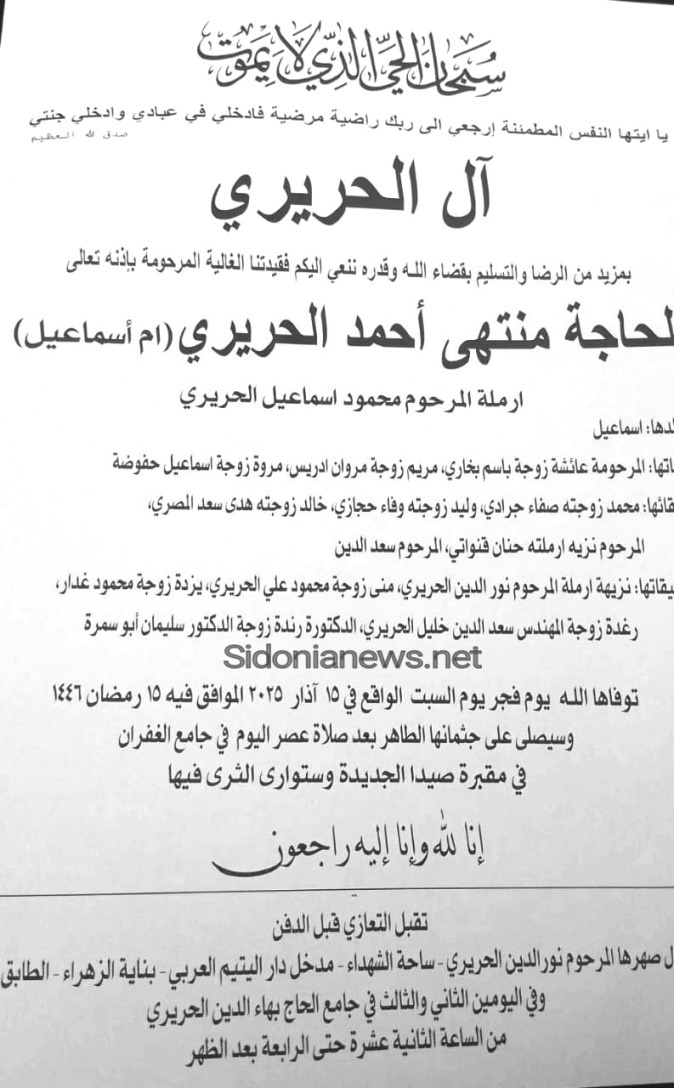 سبحان الحي الذي لا يموت
يا ايتها النفس المطمئنة إرجعي الى ربك راضية مرضية فادخلي في عبادي وادخلي جنتي
صدق الله العظيم
آل الحريري
بمزيد من الرضا والتسليم بقضاء الله وقدره ننعي اليكم فقيدتنا الغالية المرحومة بإذنه تعالى
لحاجة منتهى أحمد الحريري (ام أسماعيل)
ارملة المرحوم محمود اسماعيل الحريري
لدها: اسماعيل
اتها: المرحومة عائشة زوجة باسم بخاري، مريم زوجة مروان ادريس، مروة زوجة اسماعيل حفوضة
قائها: محمد زوجته صفاء جرادي، وليد زوجته وفاء حجازي، خالد زوجته هدى سعد المصري،
المرحوم نزيه ارملته حنان قنواتي، المرحوم سعد الدين
يقاتها: نزيهة ارملة المرحوم نور الدين الحريري، منى زوجة محمود علي الحريري، يزدة زوجة محمود غدار،
رغدة زوجة المهندس سعد الدين خليل الحريري، الدكتورة رندة زوجة الدكتور سليمان أبو سمرة
Sidonianews.net
توفاها الله يوم فجر يوم السبت الواقع في ١٥ آذار ٢٠٢٥ الموافق فيه ١٥ رمضان ١٤٤٦
وسيصلى على جثمانها الطاهر بعد صلاة عصر اليوم في جامع الغفران
في مقبرة صيدا الجديدة وستوارى الثرى فيها
إنا لله وإنا إليه راجعون
تقبل التعازي قبل الدفن
ل صهرها المرحوم نورالدين الحريري - ساحة الشهداء - مدخل دار اليتيم العربي - بناية الزهراء - الطابق
وفي اليومين الثاني والثالث في جامع الحاج بهاء الدين الحريري
من الساعة الثانية عشرة حتى الرابعة بعد الظهر